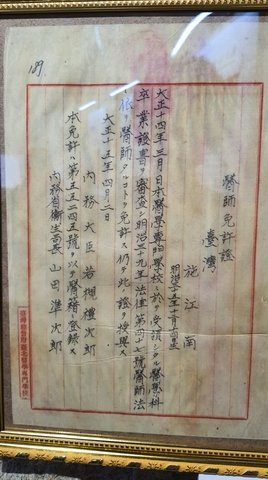 189
醫師免許證
臺灣
施江南
明治三十五年十月十四日生
大正十四年三月日本醫學專門學校ニ於テ受領シタル醫學科
卒業證書ヲ審査シ明治三十九年法律第四十七號醫師法
ニ依リ醫師タルコトヲ免許ス仍テ此證ヲ授與ス
大正十五年四月二日
內務大臣若槻禮次郎
本免許ハ第五五二四五號ヲ以テ醫籍ニ登錄ス
內務省衞生局長山田準次郎
臺灣總督府臺北醫學專門學校